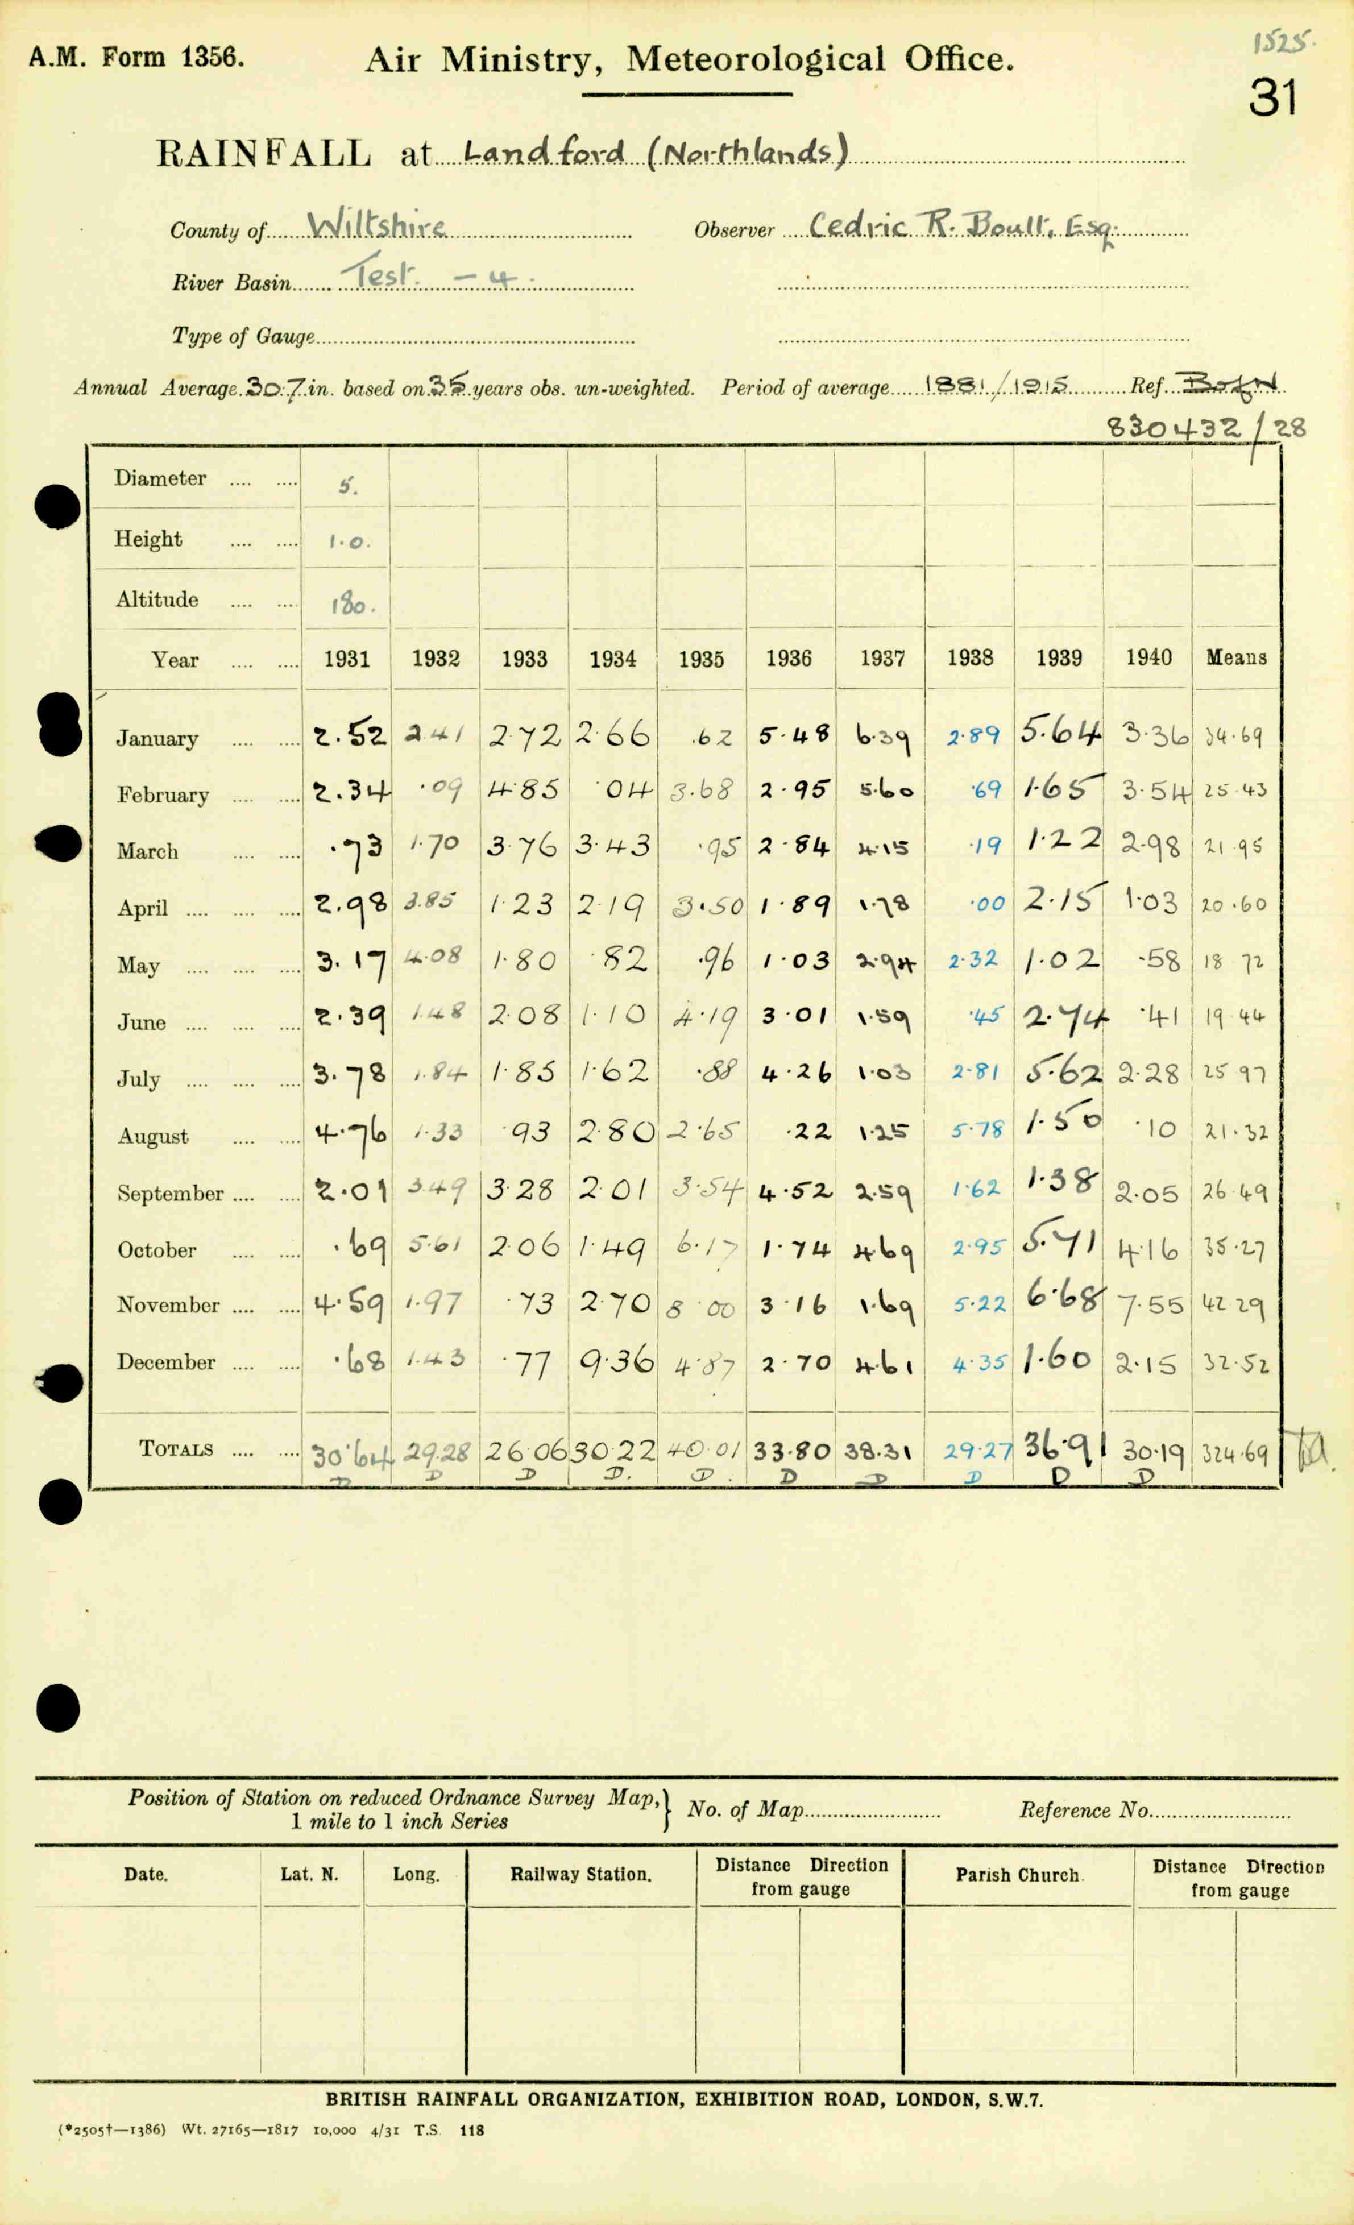 1525.
A.M. Form 1356. Air Ministry, Meteorological Office.
31
RAINFALL at Landford (Northlands)
County of Wiltshire Observer Cedric R. Boult, Esq.
River Basin Test. - 4.
Type of Gauge
Annual Average 30.7 in. based on 35 years obs. un-weighted. Period of average 1881/1915 Ref.
830432/28
Diameter 5.
Height 1.0.
Altitude 180.
Year 1931 1932 1933 1934 1935 1936 1937 1938 1939 1940 Means
January 2.52 2.41 2.72 2.66 .62 5.48 6.39 2.89 5.64 3.36 34.69
February 2.34 .09 4.85 .04 3.68 2.95 5.60 .69 1.65 3.54 25.43
March .73 1.70 3.76 3.43 .95 2.84 4.15 .19 1.22 2.98 21.95
April 2.98 3.85 1.23 2.19 3.50 1.89 1.78 .00 2.15 1.03 20.60
May 3.17 4.08 1.80 .82 .96 1.03 2.94 2.32 1.02 .58 18.72
June 2.39 1.48 2.08 1.10 4.19 3.01 1.59 .45 2.74 .41 19.44
July 3.78 1.84 1.85 1.62 .88 4.26 1.03 2.81 5.62 2.28 25.97
August 4.76 1.33 .93 2.80 2.65 .22 1.25 5.78 1.50 .10 21.32
September 2.01 3.49 3.28 2.01 3.54 4.52 2.59 1.62 1.38 2.05 26.49
October .69 5.61 2.06 1.49 6.17 1.74 4.69 2.95 5.71 4.16 35.27
November 4.59 1.97 .73 2.70 8.00 3.16 1.69 5.22 6.68 7.55 42.29
December .68 1.43 .77 9.36 4.87 2.70 4.61 4.35 1.60 2.15 32.52
TOTALS 30.64 29.28 26.06 30.22 40.01 33.80 38.31 29.27 36.91 30.19 324.69
D D D D. D. D D D D D
Position of Station on reduced Ordnance Survey Map, } No. of Map Reference No.
1 mile to 1 inch Series
Date. Lat. N. Long. Railway Station. Distance Direction from gauge Parish Church. Distance Direction from gauge
BRITISH RAINFALL ORGANIZATION, EXHIBITION ROAD, LONDON, S.W.7.
(*2505†—1386) Wt. 27165—1817 10,000 4/31 T.S. 118